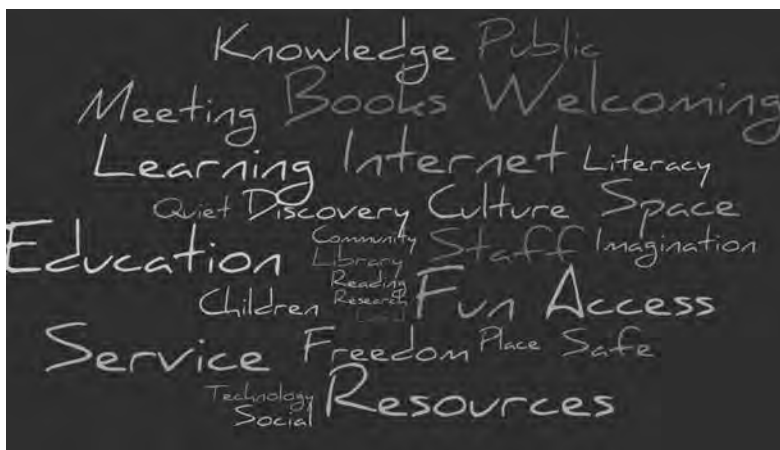 Knowledge Public
Meeting Books Welcoming
Learning Internet Literacy
Quiet Discovery Culture Space
Education Community Staff Imagination
Library
Reading
Children Research Fun Access
Service Freedom Place Safe
Technology
Social Resources